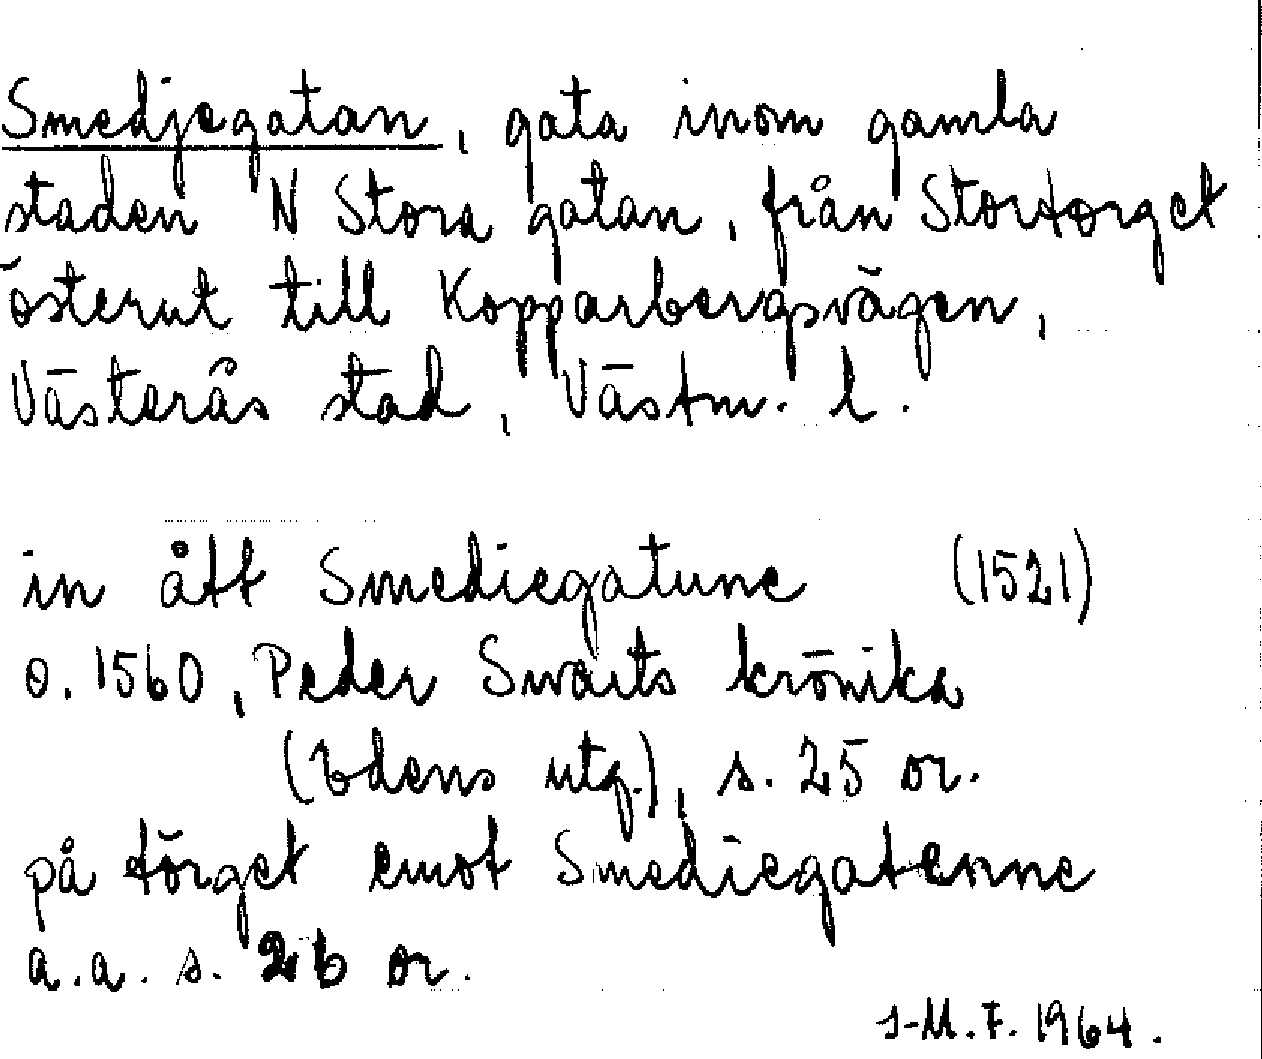 Smedjegatan, gata inom gamla
staden N Stora gatan, från Stortorget
österut till Kopparbergsvägen,
Västerås stad, Västm. l.
in ått Smediegatune (1521)
o. 1560, Peder Swarts krönika
(Edens utg.), s. 25 or.
på törget emot Smediegatenne
a.a. s. 26 or.
I-M.F. 1964.